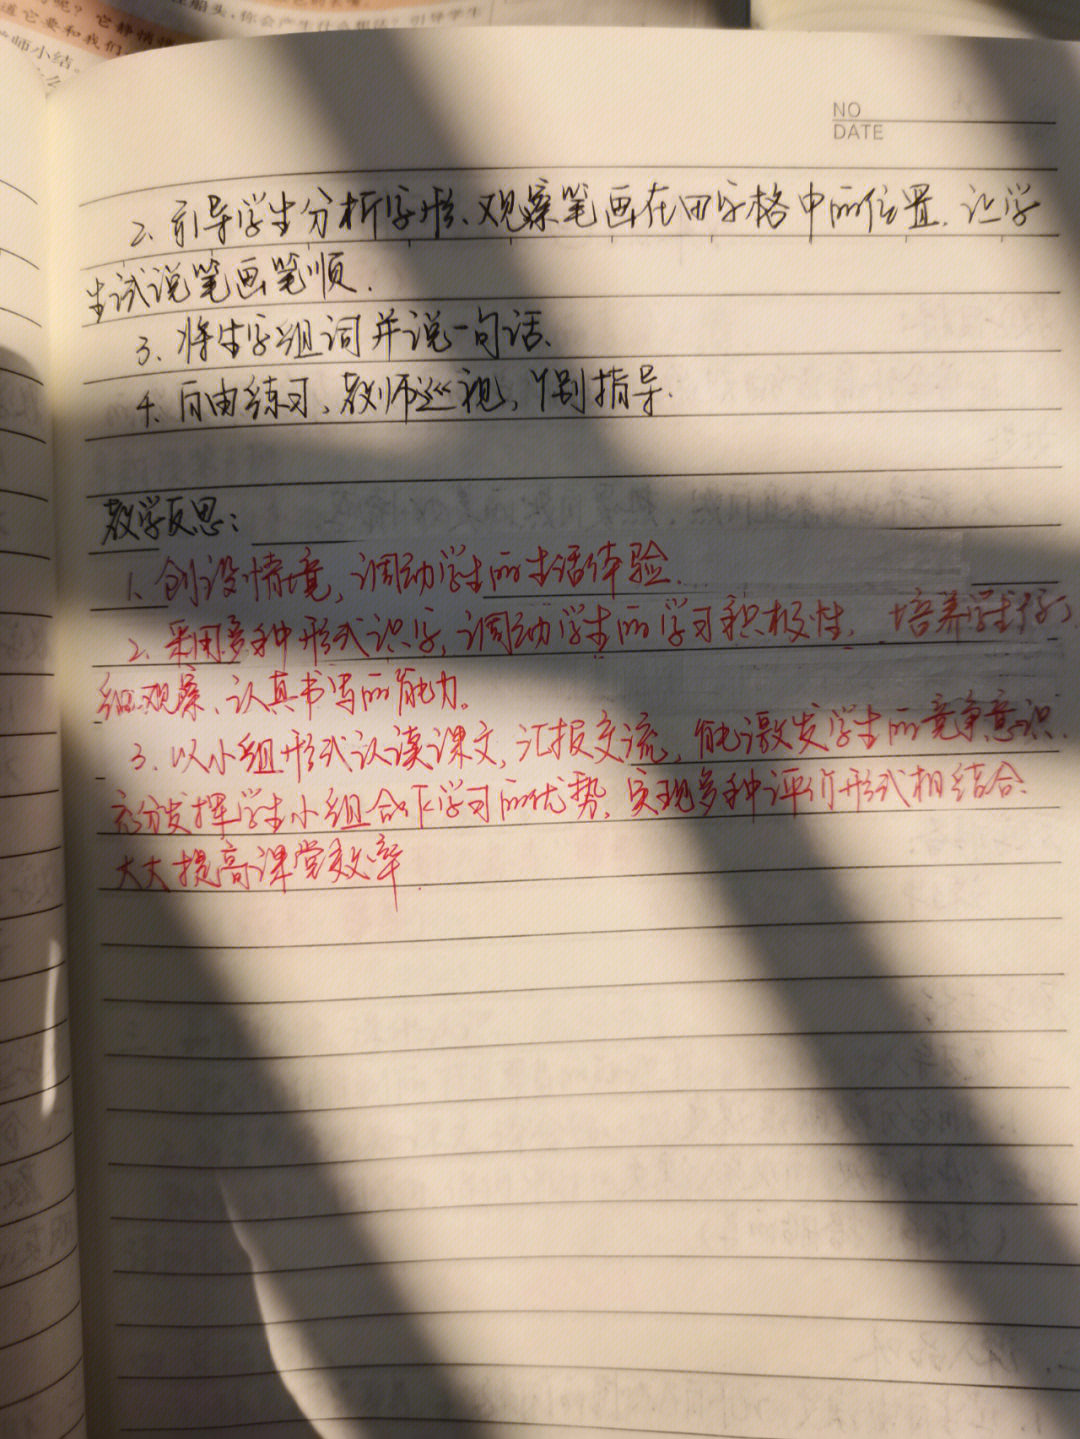 道它要和我们
师小结。
船头,你会产生什么想法?引导学生
NO
DATE
2、引导学生分析字形、观察笔画在田字格中的位置.让学
生试说笔画笔顺.
3、将生字组词并说一句话、
4、自由练习、教师巡视,个别指导.
教学反思:
1、创设情境,调动学生的生活体验.
2、采用多种形式识字,调动学生的学习积极性,培养学生仔
细观察、认真书写的能力。
3、以小组形式认读课文,汇报交流,能激发学生的竞争意识.
充分发挥学生小组合作学习的优势,实现多种评价形式相结合.
大大提高课堂效率.